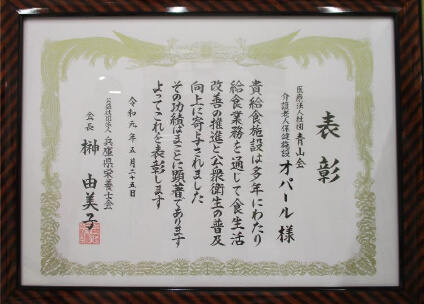 表彰
医療法人社団 青山会
介護老人保健施設 オパール 様
貴給食施設は多年にわたり
給食業務を通して食生活
改善の推進と公衆衛生の普及
向上に寄与されました
その功績はまことに顕著であります
よってこれを表彰します
令和元年五月二十五日
公益社団法人 兵庫県栄養士会
会長 榊 由美子